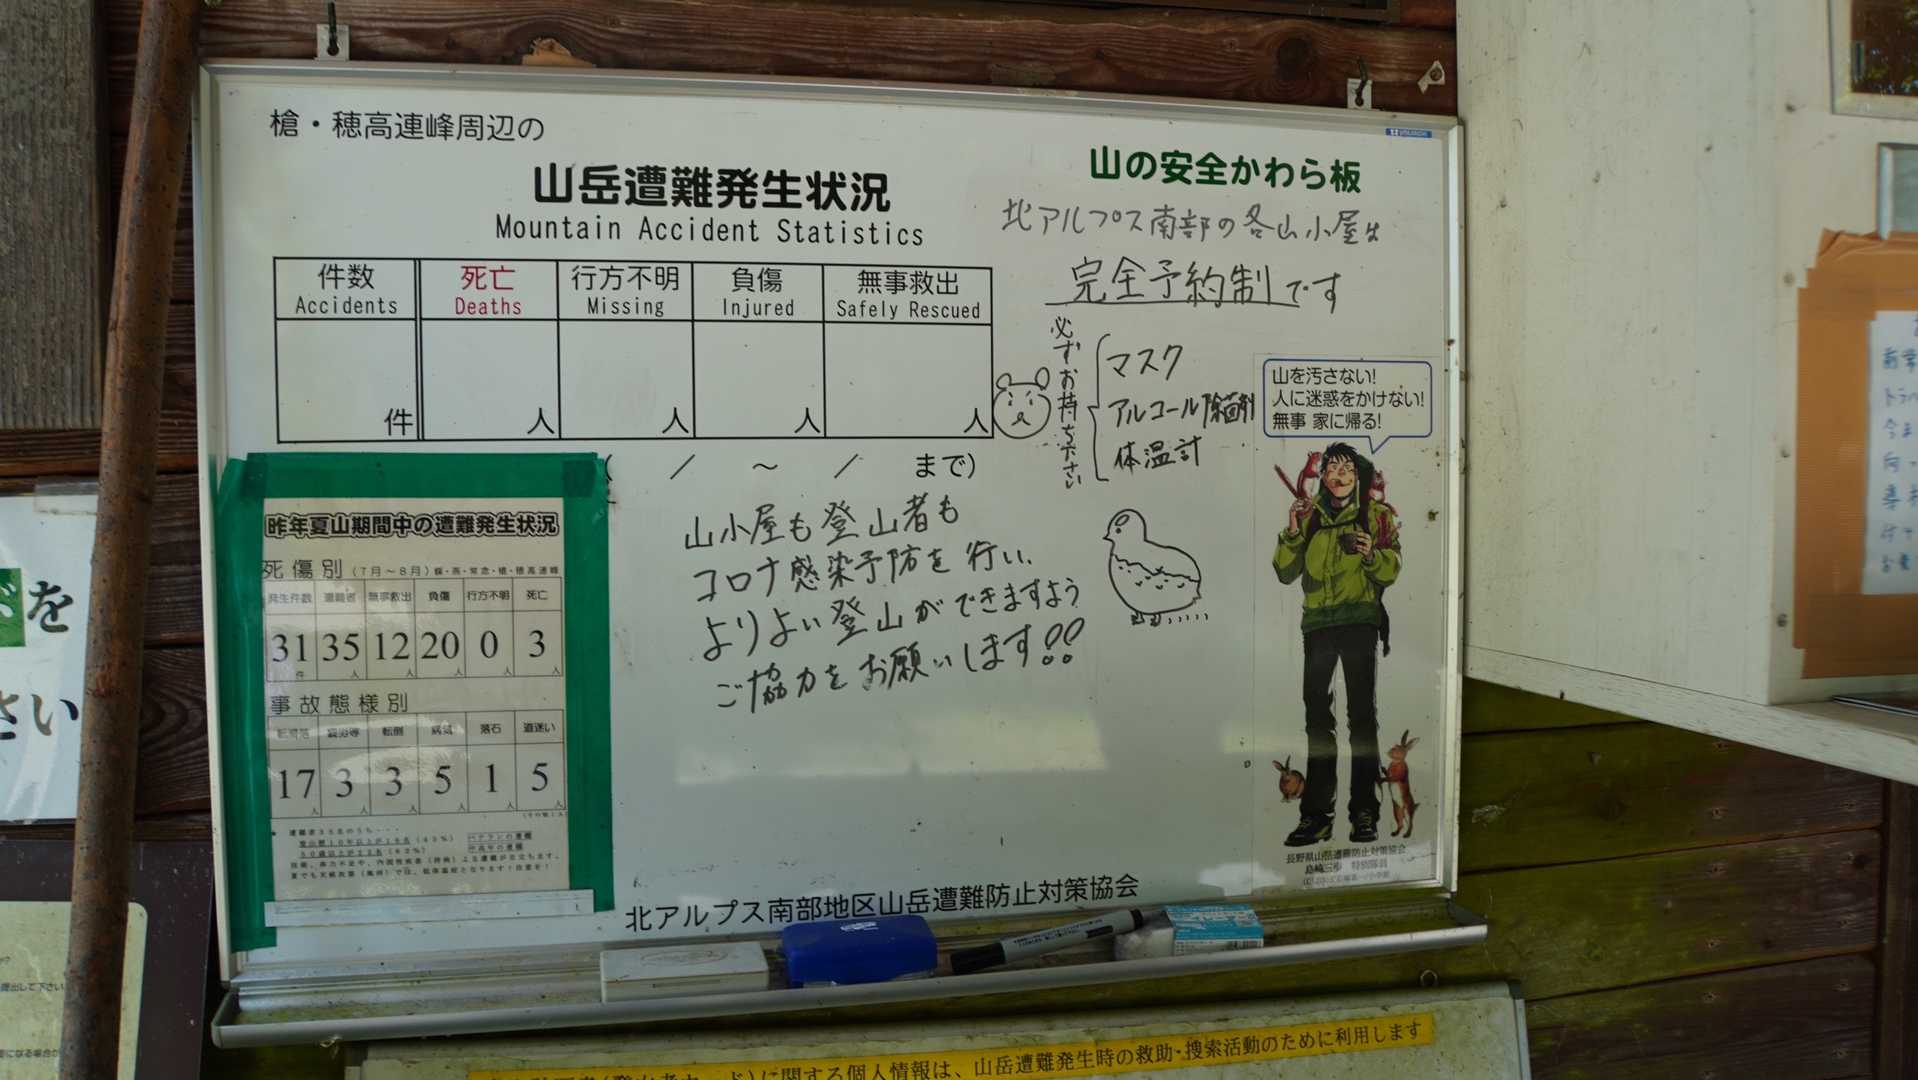 槍・穂高連峰周辺の
山岳遭難発生状況
Mountain Accident Statistics
件数 死亡 行方不明 負傷 無事救出
Accidents Deaths Missing Injured Safely Rescued
件 人 人 人 人
( / ～ / まで)
山小屋も登山者も
コロナ感染予防を行い、
よりよい登山ができますよう
ご協力をお願いします!!
山の安全かわら板
北アルプス南部の各山小屋は
完全予約制です
必ずお持ち下さい
マスク
アルコール除菌剤
体温計
山を汚さない!
人に迷惑をかけない!
無事 家に帰る!
長野県山岳遭難防止対策協会
島崎三歩 特別隊員
昨年夏山期間中の遭難発生状況
死傷別(7月～8月)蝶・燕・常念・槍・穂高連峰
発生件数 遭難者 無事救出 負傷 行方不明 死亡
31 35 12 20 0 3
件 人 人 人 人 人
事故態様別
転滑落 疲労等 転倒 病気 落石 道迷い
17 3 3 5 1 5
人 人 人 人 人 人
遭難者35名のうち・・・
北アルプス南部地区山岳遭難防止対策協会
に関する個人情報は、山岳遭難発生時の救助・捜索活動のために利用します
を
さい